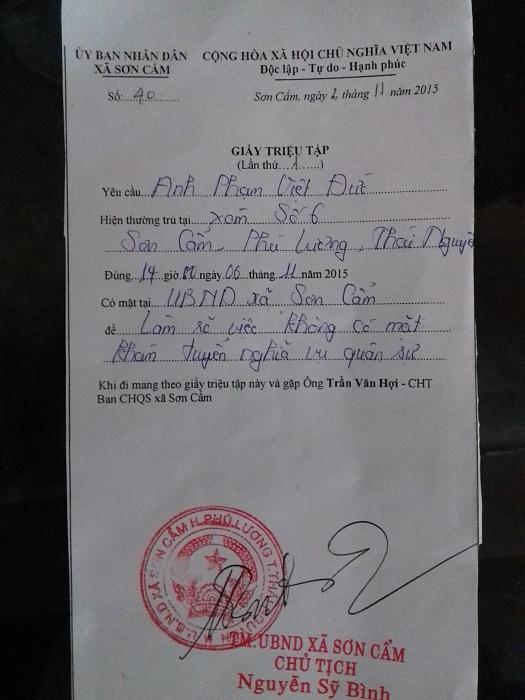 ỦY BAN NHÂN DÂN CỘNG HÒA XÃ HỘI CHỦ NGHĨA VIỆT NAM
XÃ SƠN CẨM Độc lập - Tự do - Hạnh phúc
Số: 40 Sơn Cẩm, ngày 2 tháng 11 năm 2015
GIẤY TRIỆU TẬP
(Lần thứ...1......)
Yêu cầu Anh Phạm Việt Đức
Hiện thường trú tại xóm Số 6
Sơn Cẩm, Phú Lương, Thái Nguyê
Đúng 14 giờ 00 ngày 06 tháng 11 năm 2015
Có mặt tại UBND xã Sơn Cẩm
để Làm rõ việc không có mặt
khám tuyển nghĩa vụ quân sự
Khi đi mang theo giấy triệu tập này và gặp Ông Trần Văn Hợi - CHT
Ban CHQS xã Sơn Cẩm
U.B.N.D XÃ SƠN CẨM H.PHÚ LƯƠNG T.THÁI NGUYÊN
TM.UBND XÃ SƠN CẨM
CHỦ TỊCH
Nguyễn Sỹ Bình